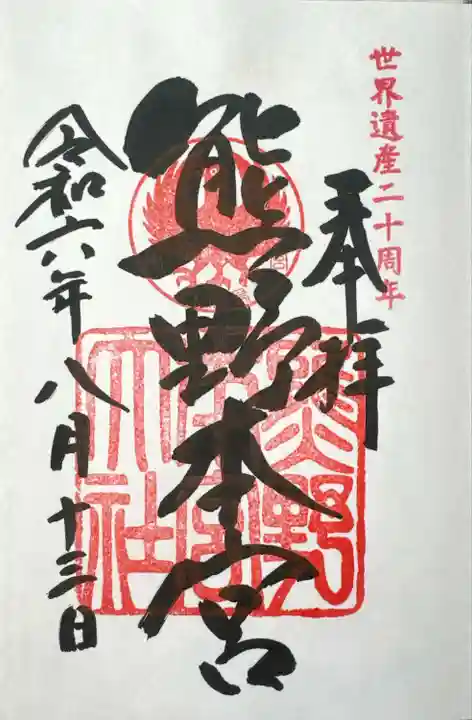 世界遺産二十周年
奉拝
熊野本宮
熊野
本宮
大社
令和六年八月十三日